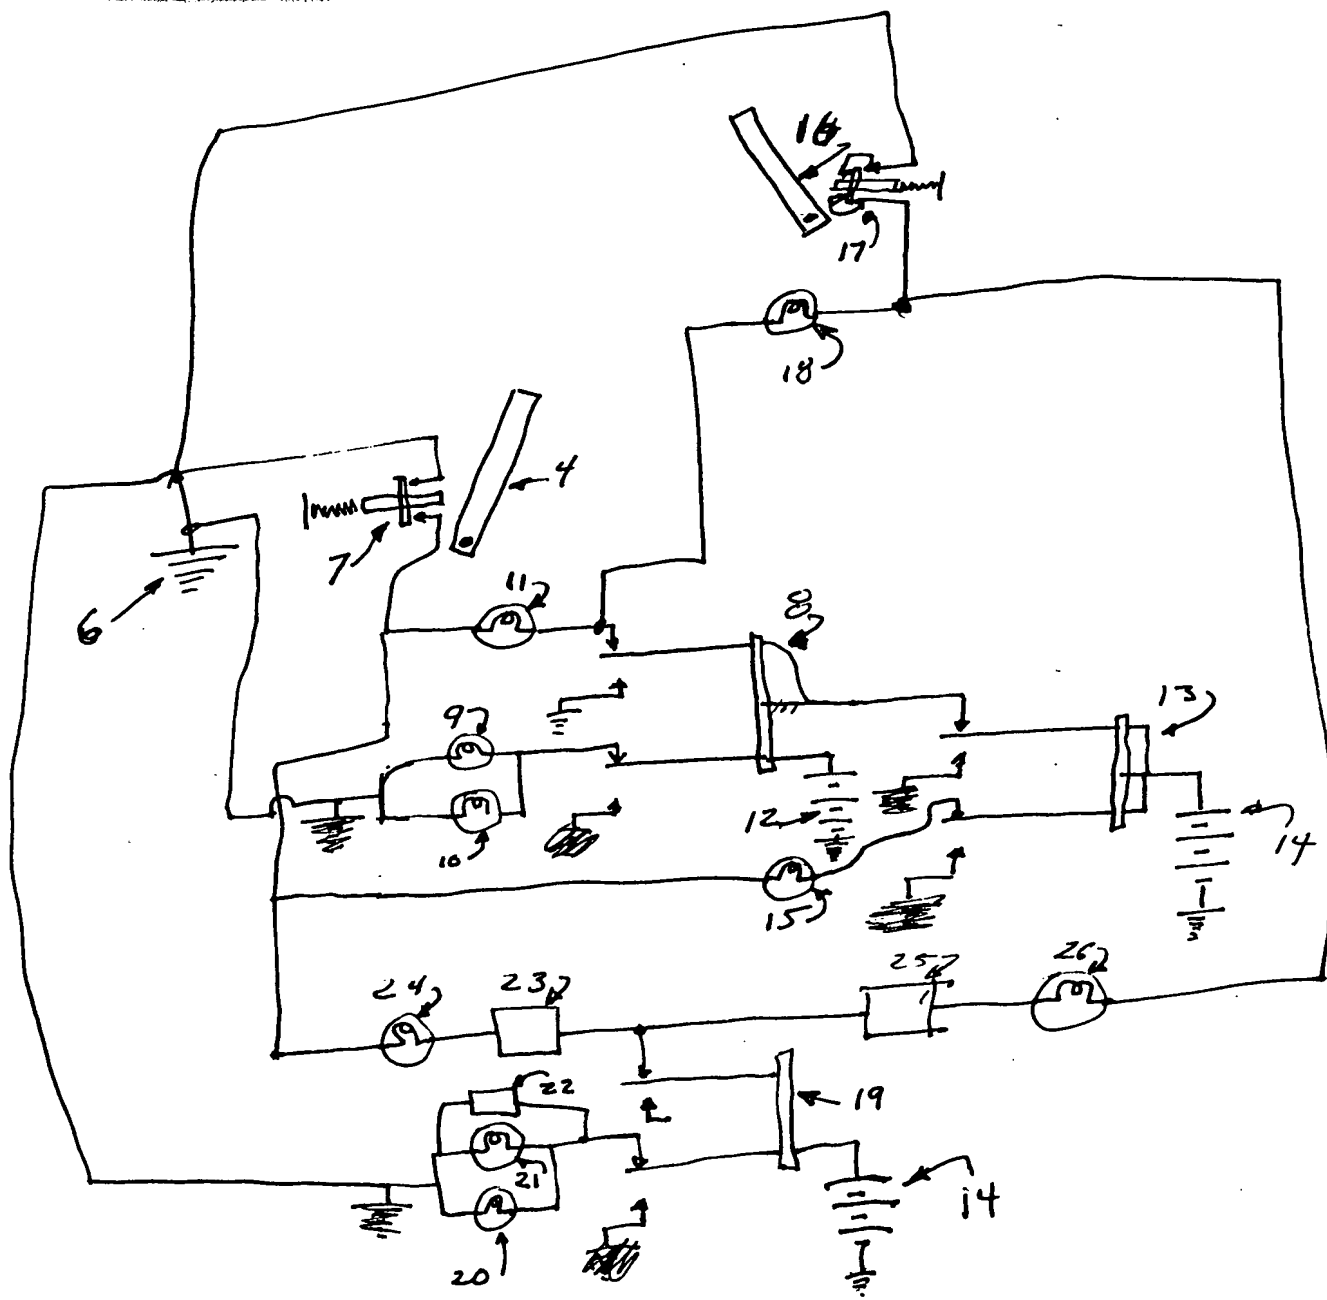 16
17
18
4
7
6
11
8
9
13
12
10
14
15
24
23
25
26
22
19
21
14
20